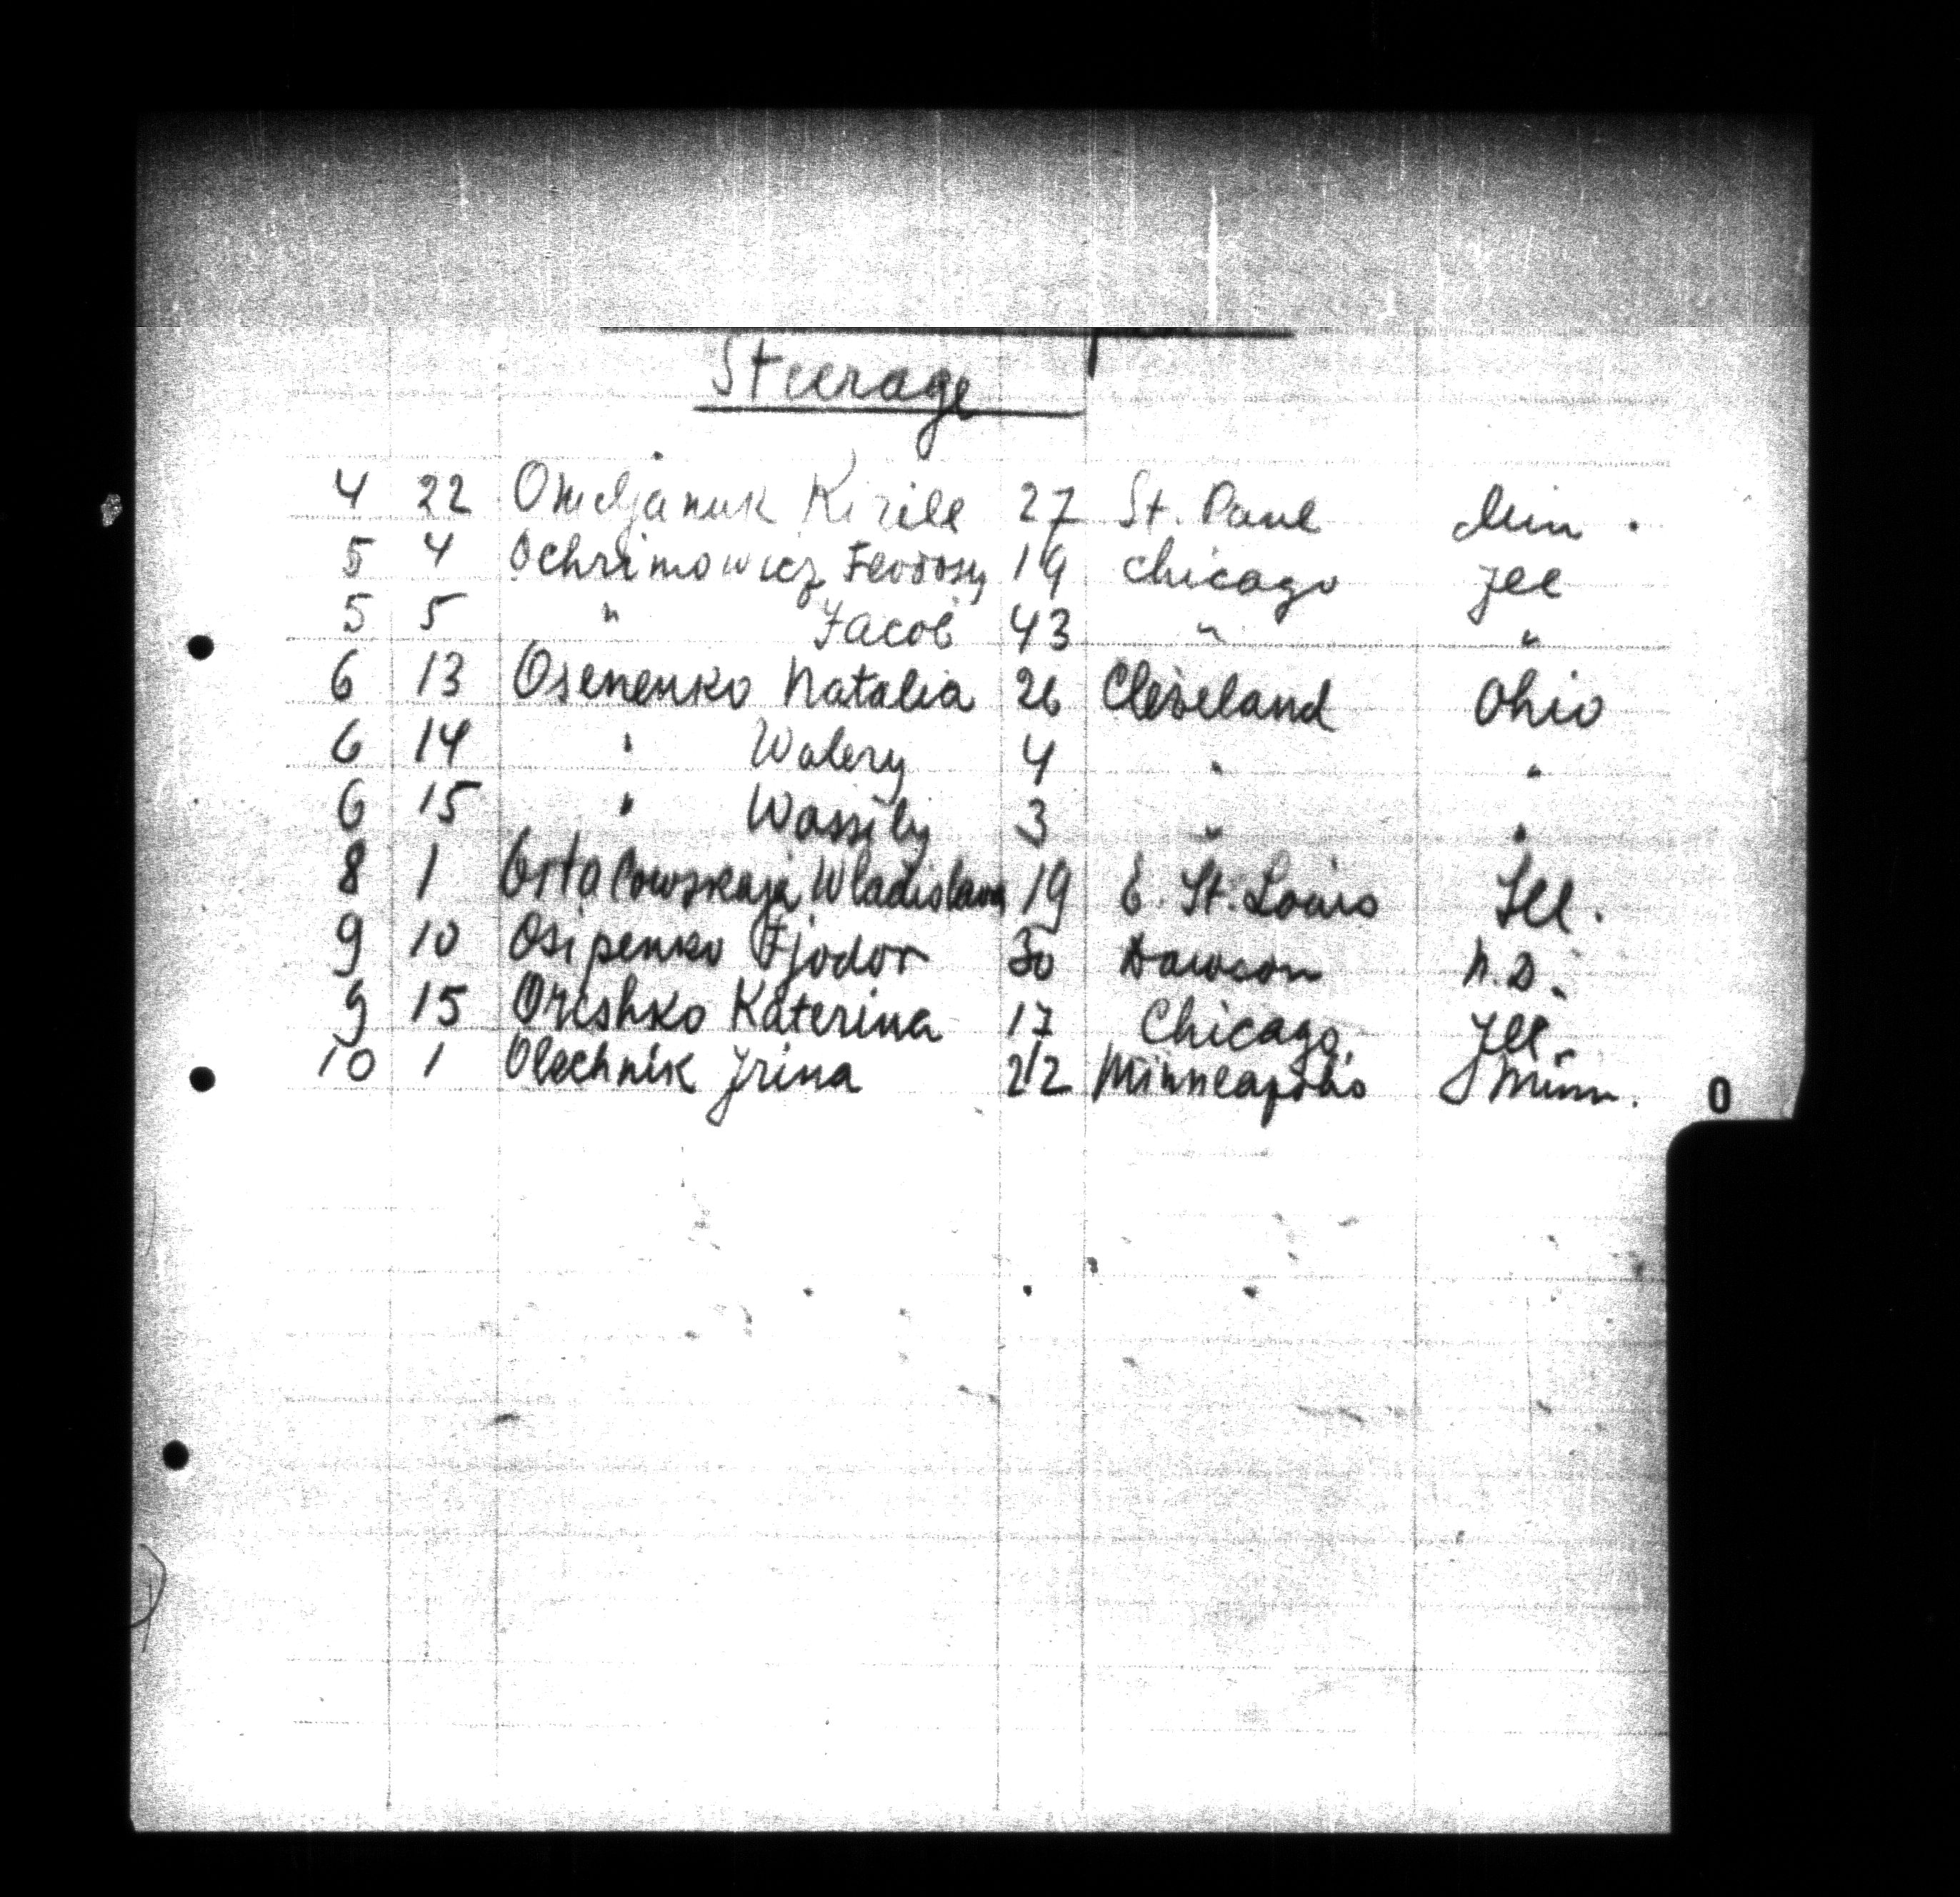 Steerage
4 22 Omeljanuk Kirill 27 St. Paul Min.
5 4 Ochrimowicz Feodosy 19 Chicago Ill
5 5 " Jacob 43 " "
6 13 Osenenko Natalia 26 Cleveland Ohio
6 14 " Walery 4 " "
6 15 " Wassily 3 " "
8 1 Wladislawa 19 E. St. Louis Ill.
9 10 Osipenko Fjodor 30 Dawson N.D.
9 15 Oreshko Katerina 17 Chicago. Ill.
10 1 Olechnik Irina 22 Minneapolis Minn.
O